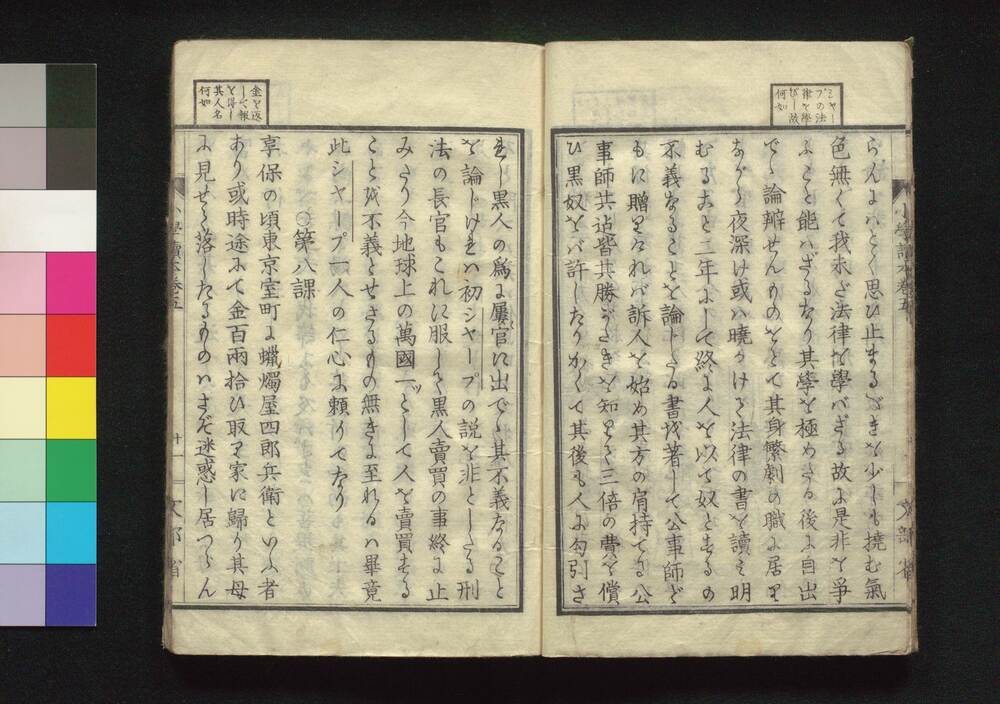 シャー
プの法
律を學
びし故
何如
らんにハとく思ひ止まるべきを少しも撓む氣
色無くて我未だ法律を學バざる故に是非を爭
ふこと能ハざるなり其學を極めたる後に自出
でゝ論辯せんものをとて其身繁劇の職に居り
ながら夜深け或ハ曉かけて法律の書を讀ミ明
むること二年にして終に人を以て奴とするの
不義なることを論じたる書を著して公事師ど
もに贈りけれバ訴人を始め其方の肩持てる公
事師共迠皆其勝がたきを知りて三倍の費を償
ひ黒奴をバ許したりかくて其後も人に勾引さ
小學讀本卷五
文部省
金を返
して報
を得し
其人名
何如
れし黒人の爲に屢官に出でゝ其不義なること
を論じけれハ初シャープの説を非としたる刑
法の長官もこれに服して黒人賣買の事終に止
みたり今地球上の萬國一ツとして人を賣買する
ことを不義とせざるもの無きに至れるハ畢竟
此シャープ一人の仁心に頼りてなり
〇第八課
享保の頃東京室町に蠟燭屋四郎兵衞といふ者
あり或時途にて金百兩拾ひ取り家に歸り其母
に見せて落したるものハさぞ迷惑し居つらん
小學讀本卷五
十一
文部省